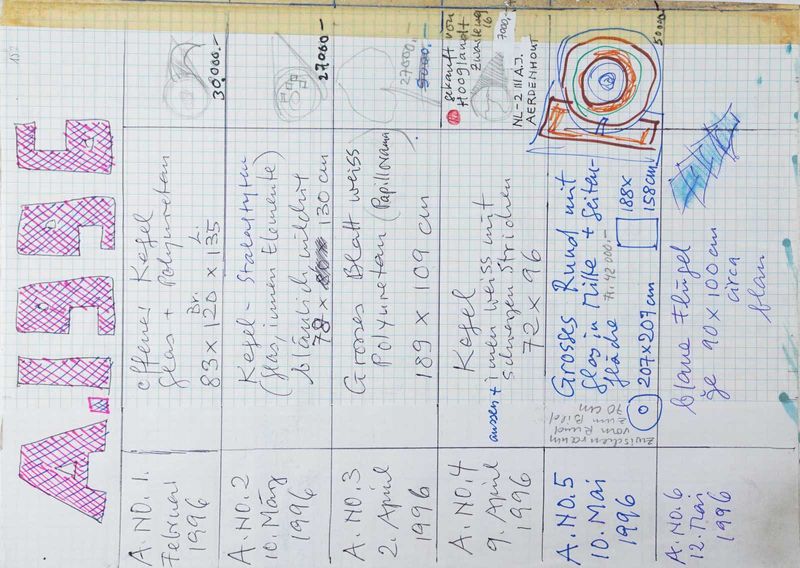 A.1996
A.NO.1.
Februar
1996
offener Kegel
Glas + Polyuretan
Br. L.
83 x 120 x 135
30,000.-
A.NO.2
10. März
1996
Kegel - Stalaktyten
(Glas, innen Elemente)
bläulich wildlich
78 x 130 cm
27000.-
A.NO.3
2. April
1996
Grosses Blatt weiss
Polyuretan (Papillorama)
189 x 109 cm
27000.-
9000.-
A.NO.4
9. April
1996
Kegel
aussen + innen weiss mit
schwarzen Strichen
72 x 96
gekauft von
Hooglandt
7000,-
NL-2111 A.J.
AERDENHOUT
A.NO.5
10. Mai
1996
Zwischenraum
vom Rund
zum Bild
70 cm
Grosses Rund mit
Glas in Mitte + Seiten-
fläche
Fr. 42 000.-
207x207 cm
188x
158 cm
50000.-
A.NO.6.
12. Mai
1996
blaue Flügel
je 90 x 100 cm
circa
blau